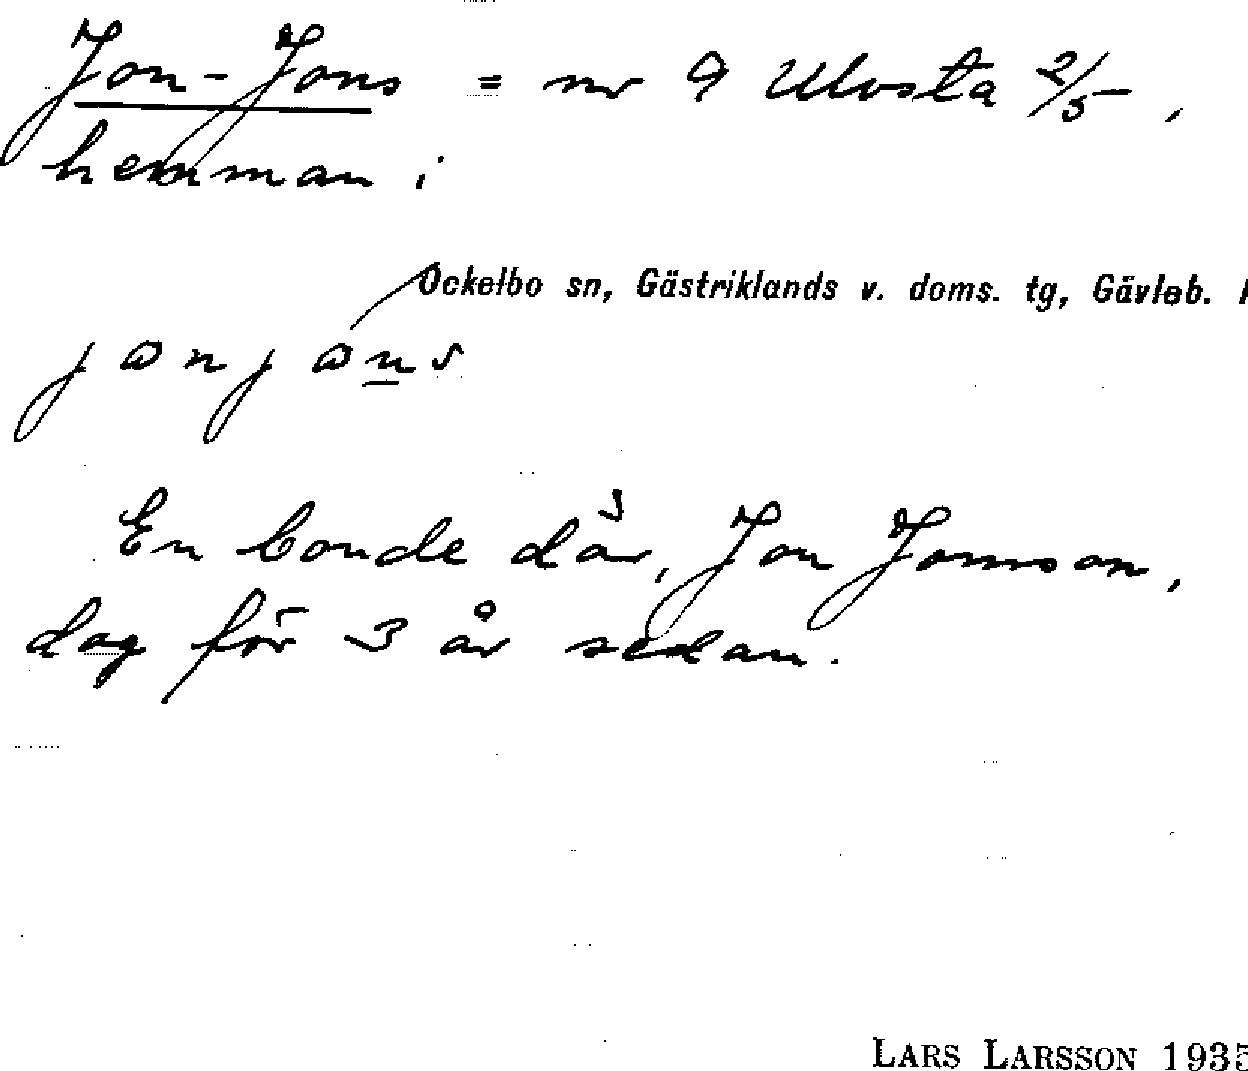 Jon-Jons = nr 9 Ulvsta 2/5,
hemman i
Ockelbo sn, Gästriklands v. doms. tg, Gävleb.
jɷnjɷns
En bonde där, Jon Jonsson,
dog för 3 år sedan.
LARS LARSSON 1935